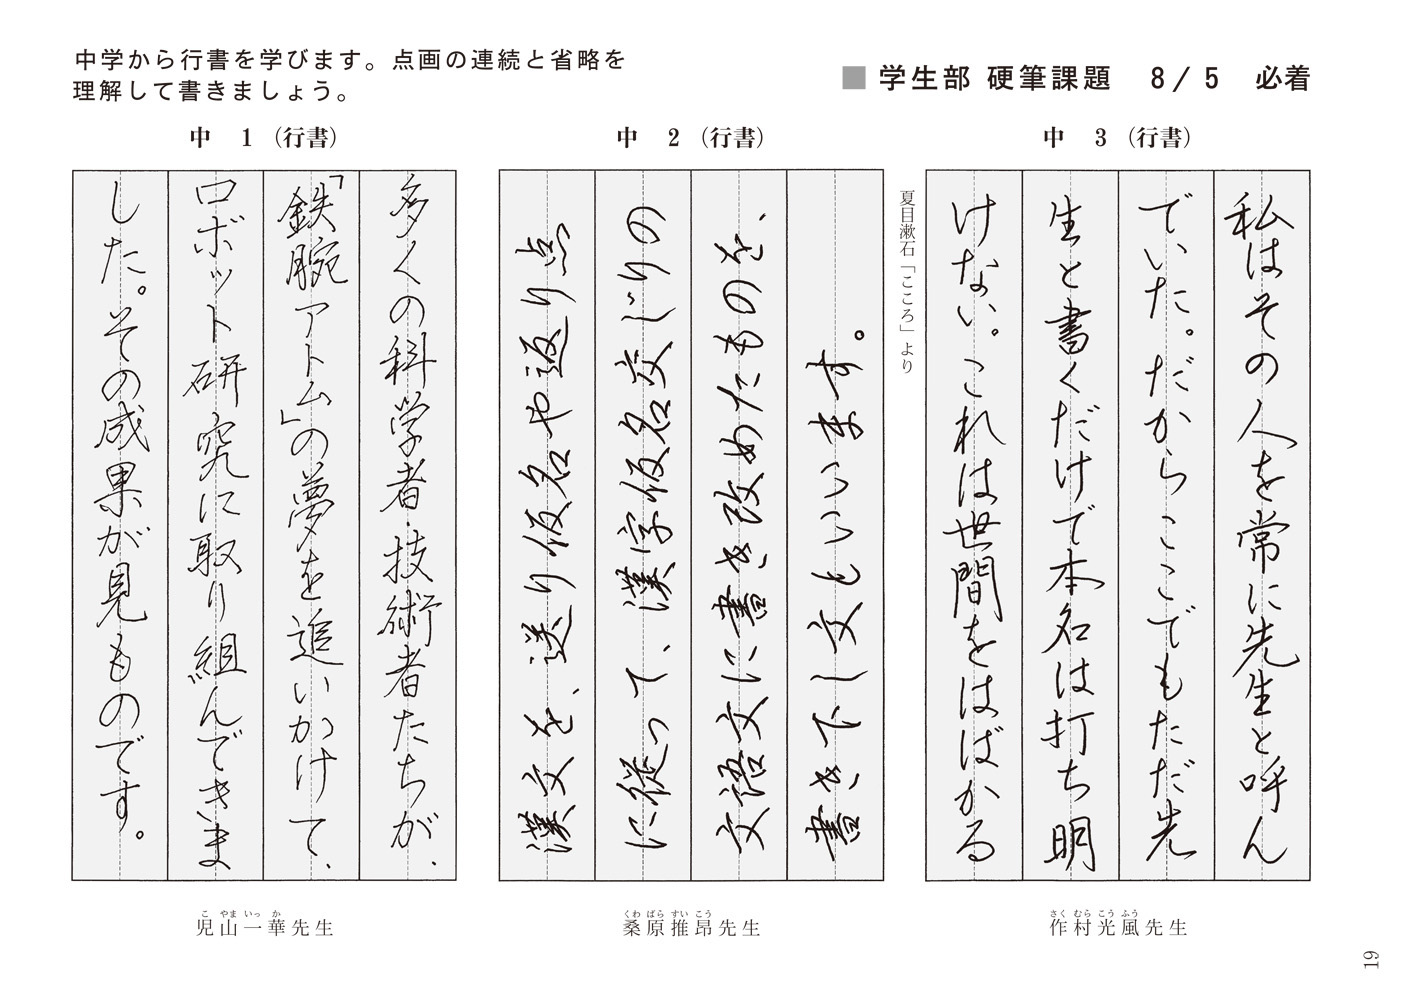 中学から行書を学びます。点画の連続と省略を
理解して書きましょう。
■ 学生部 硬筆課題 8/5 必着
中 1 (行書)
多くの科学者・技術者たちが、
「鉄腕アトム」の夢を追いかけて、
ロボット研究に取り組んできま
した。その成果が見ものです。
こやまいっか
児山一華先生
中 2 (行書)
漢文を、送り仮名や返り点
に従って、漢字仮名交じりの
文語文に書き改めたものを、
書き下し文といいます。
くわばらすいこう
桑原推昂先生
中 3 (行書)
私はその人を常に先生と呼ん
でいた。だからここでもただ先
生と書くだけで本名は打ち明
けない。これは世間をはばかる
夏目漱石「こころ」より
さくむらこうふう
作村光風先生
19